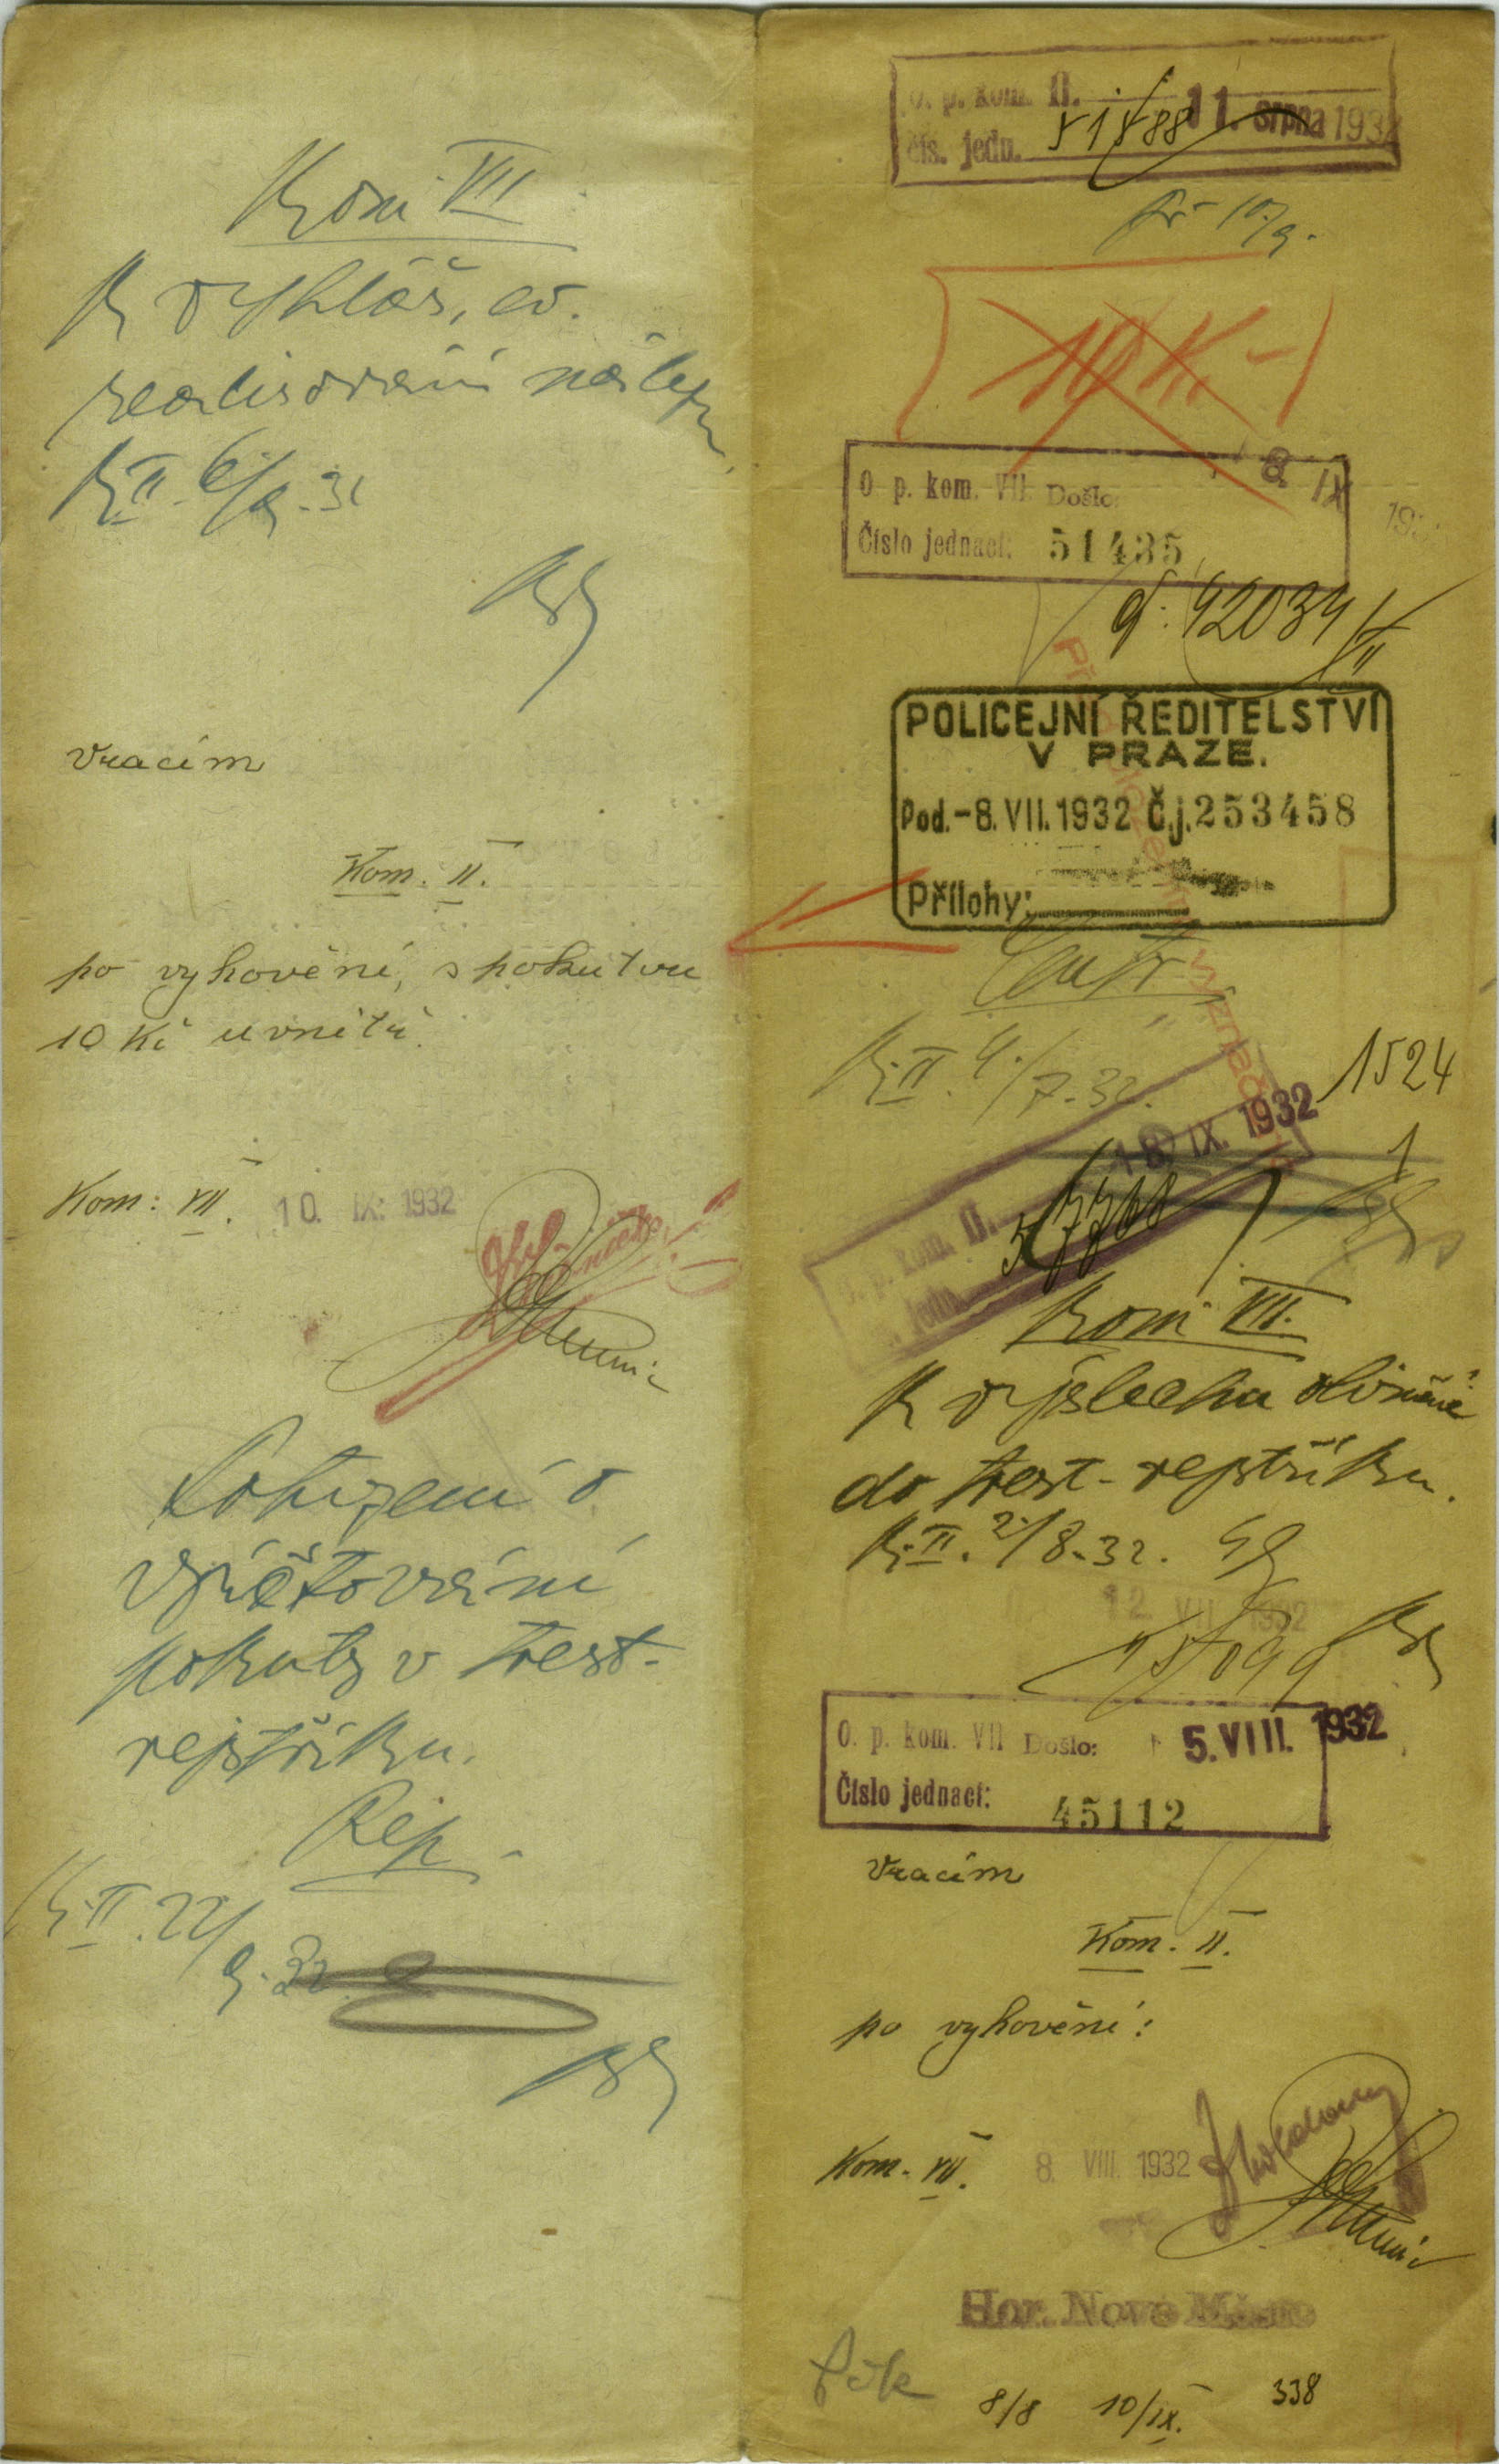 Kom. VII
K vyhláš. ev.
realisování nálezu
K. II. 6/9. 32
Vracím
Kom. II.
po vyhovění, s pokutou
10 Kč uvnitř.
Kom: VII. 10. IX. 1932
Potvrzení o
vyúčtování
pokuty v trest.
rejstříku.
Rej.
K. II. 22/
9. 32
O. p. kom. II. 11. srpna 1932
čís. jedn.
10/9.
10 K.-
O. p. kom. VII. Došlo: 8. IX 193
Číslo jednací: 51435
42034/VII
POLICEJNÍ ŘEDITELSTVÍ
V PRAZE.
Pod. -8. VII. 1932 Č.j. 253458
Přílohy:
K. II. 9./7. 32.
1524
18. IX. 1932
O. p. kom. II.
Kom. VII.
K výslechu obviněné
do trest. rejstříku.
K. II. 2./8. 32.
12. VII. 1932
O. p. kom. VII Došlo: 5. VIII. 1932
Číslo jednací: 45112
Vracím
Kom. II.
po vyhovění:
Kom. VII. 8. VIII. 1932
Hor. Nové Město
8/8 10/IX. 338